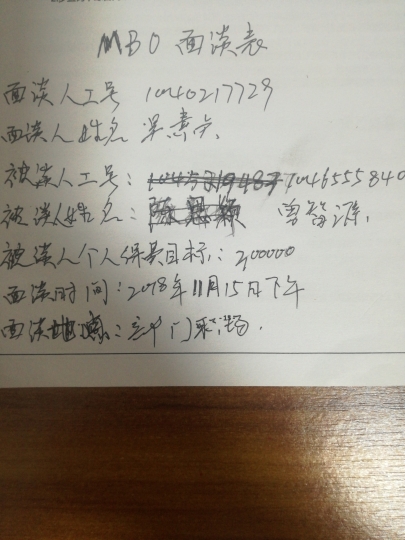 MBO 面谈表
面谈人工号 1040217729
面谈人姓名 梁素
被谈人工号: 1046555840
被谈人姓名: 曾智源.
被谈人个人保费目标: 200000
面谈时间: 2018年11月15日下午
面谈地点: 部门职场.